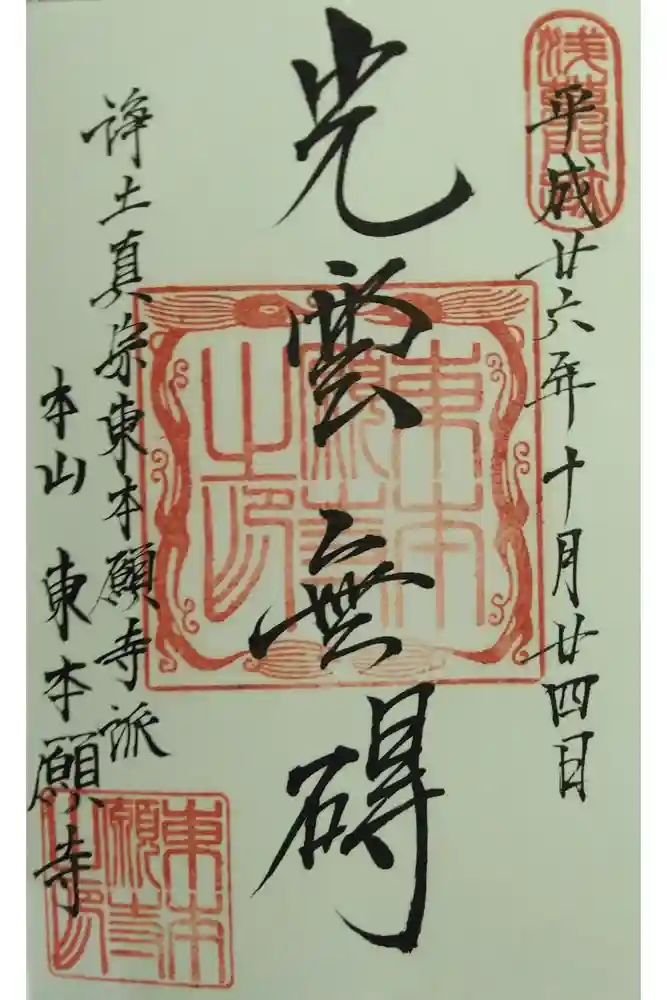 平成廿六年十月廿四日
光雲無碍
諍土真宗東本願寺派
本山 東本願寺
東本願寺之印
東本願寺之印